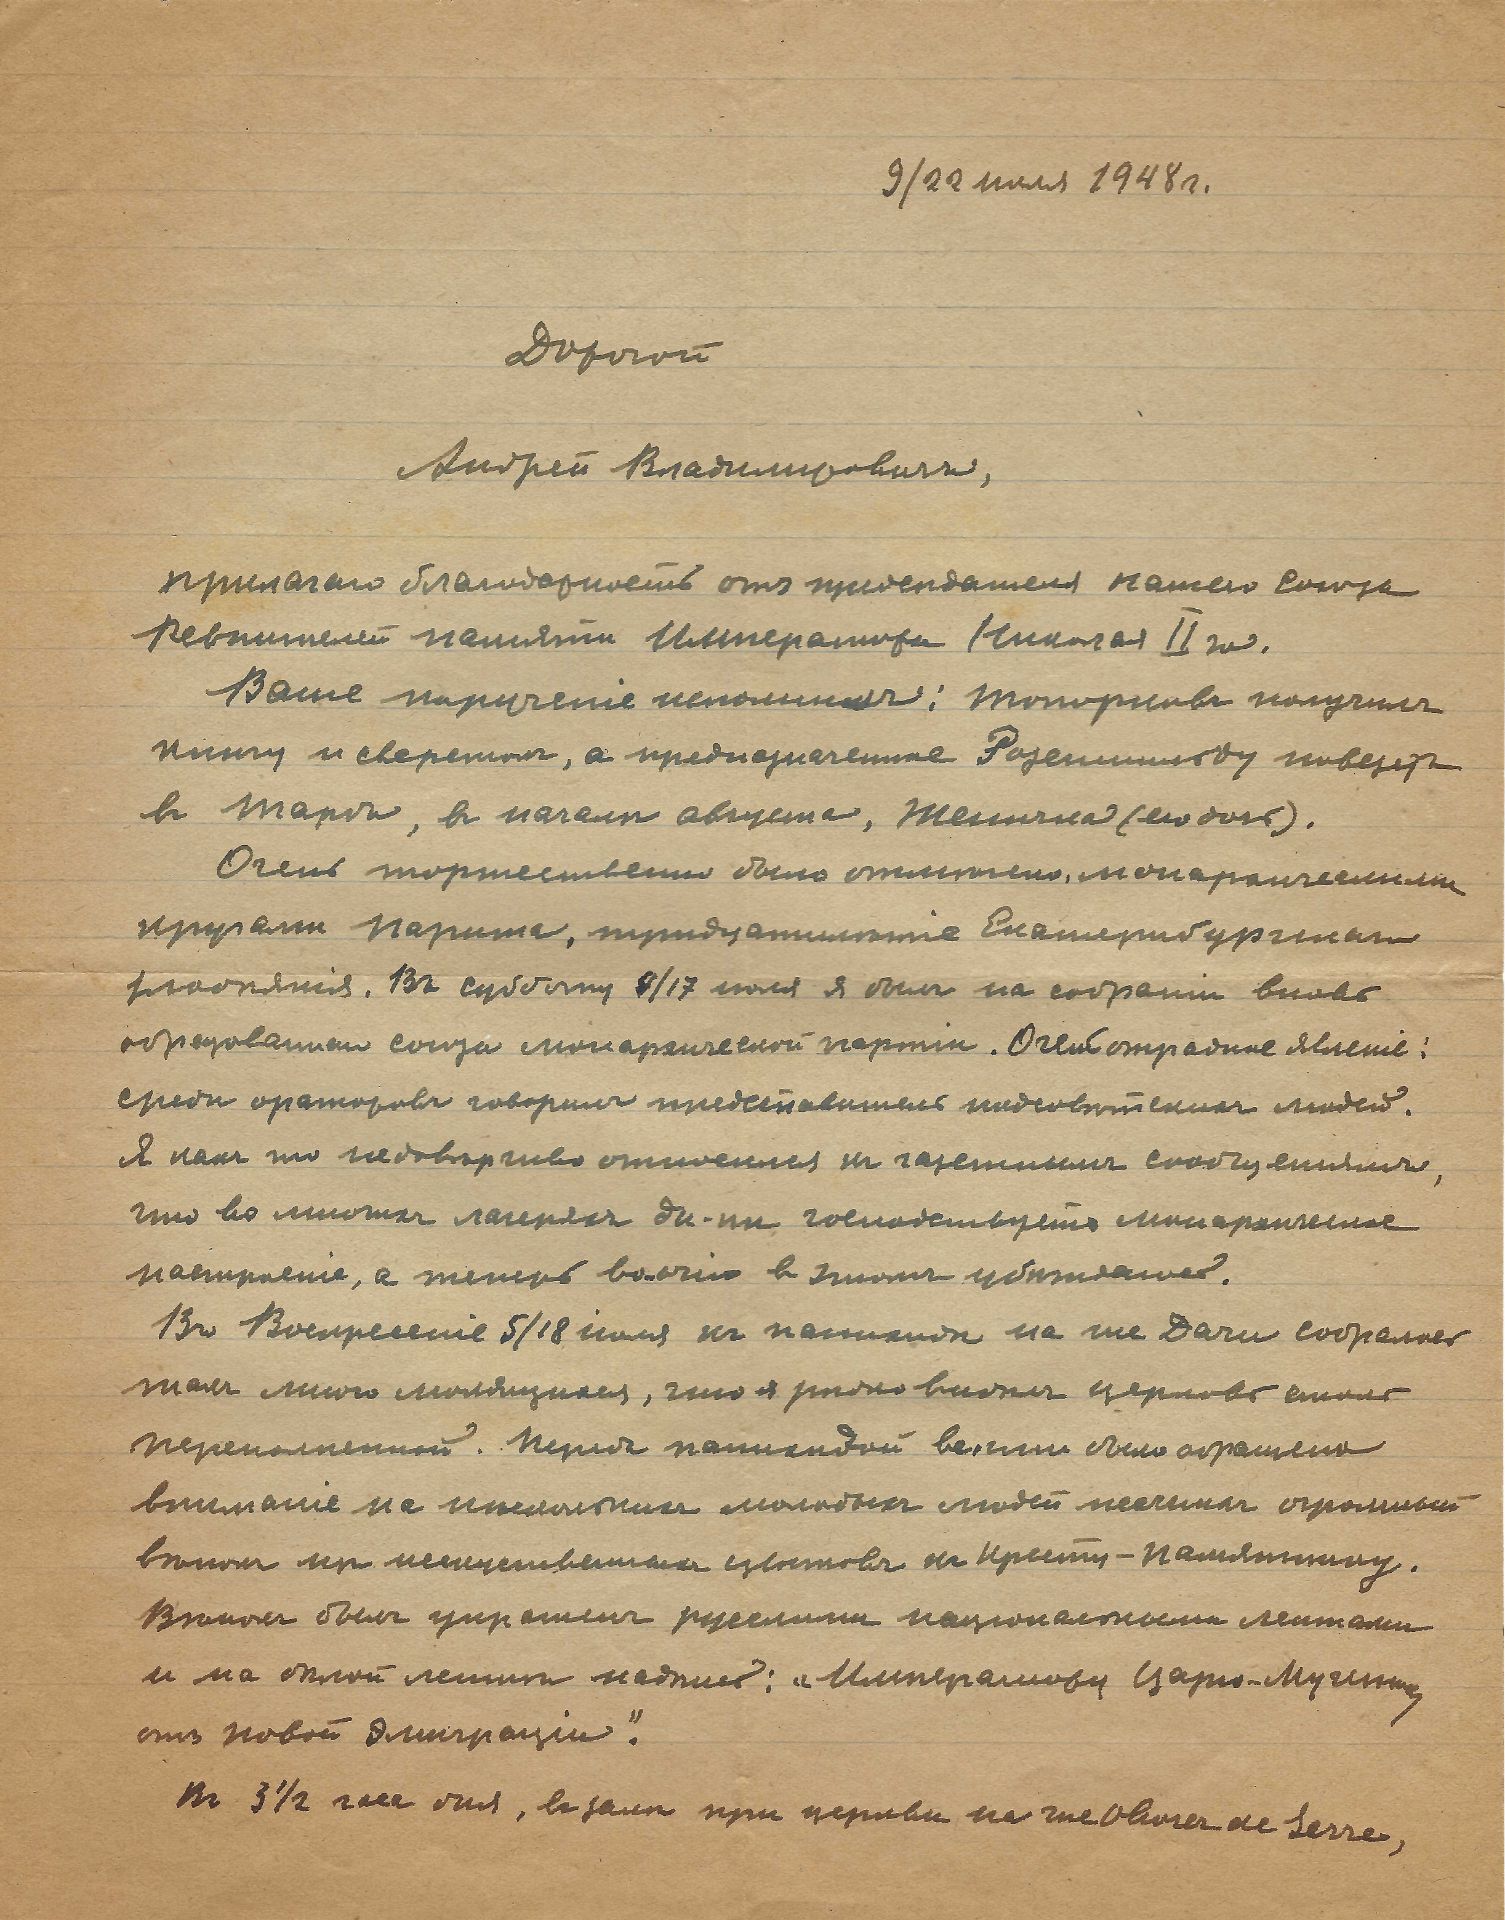 9/22 июля 1948 г.
Дорогой
Андрей Владимировичъ,
прилагаю благодарность отъ председателя нашего Союза
Ревнителей памяти Императора Николая II го.
Ваше порученіе исполнилъ: Топорковъ получилъ
книгу и свертокъ, а предназначенное повезетъ
в , в начале августа, Женичка (его дочь).
Очень торжественно было отмечено монархическими
кругами Парижа, тридцатилѣтіе Екатеринбургскаго
злодѣянія. Въ субботу /17 июля я былъ на собраніи вновь
образованнаго союза монархической партіи. Очень отрадное явленіе:
среди ораторовъ говорилъ представитель подсовѣтскихъ людей.
Я какъ то недовѣрчиво относился къ газетнымъ сообщеніямъ,
что во многихъ лагеряхъ ди-пи господствуетъ монархическое
настроеніе, а теперь воочію в этомъ убѣждаюсь.
Въ Воскресеніе 5/18 июля къ панихидѣ на rue Дарю собралось
такъ много молящихся, что я рѣдко видѣлъ церковь столь
переполненной. Передъ панихидой всѣми было обращено
вниманіе на нѣсколькихъ молодыхъ людей несшихъ огромный
вѣнокъ из искусственныхъ цвѣтовъ къ Кресту-Памятнику.
Вѣнокъ былъ украшенъ русскими національными лентами
и на бѣлой лентѣ надпись: „Императору Царю-Мученику
отъ новой эмиграціи".
Въ 3 1/2 часа дня, в залѣ при церкви на rue Olivier de Serre,